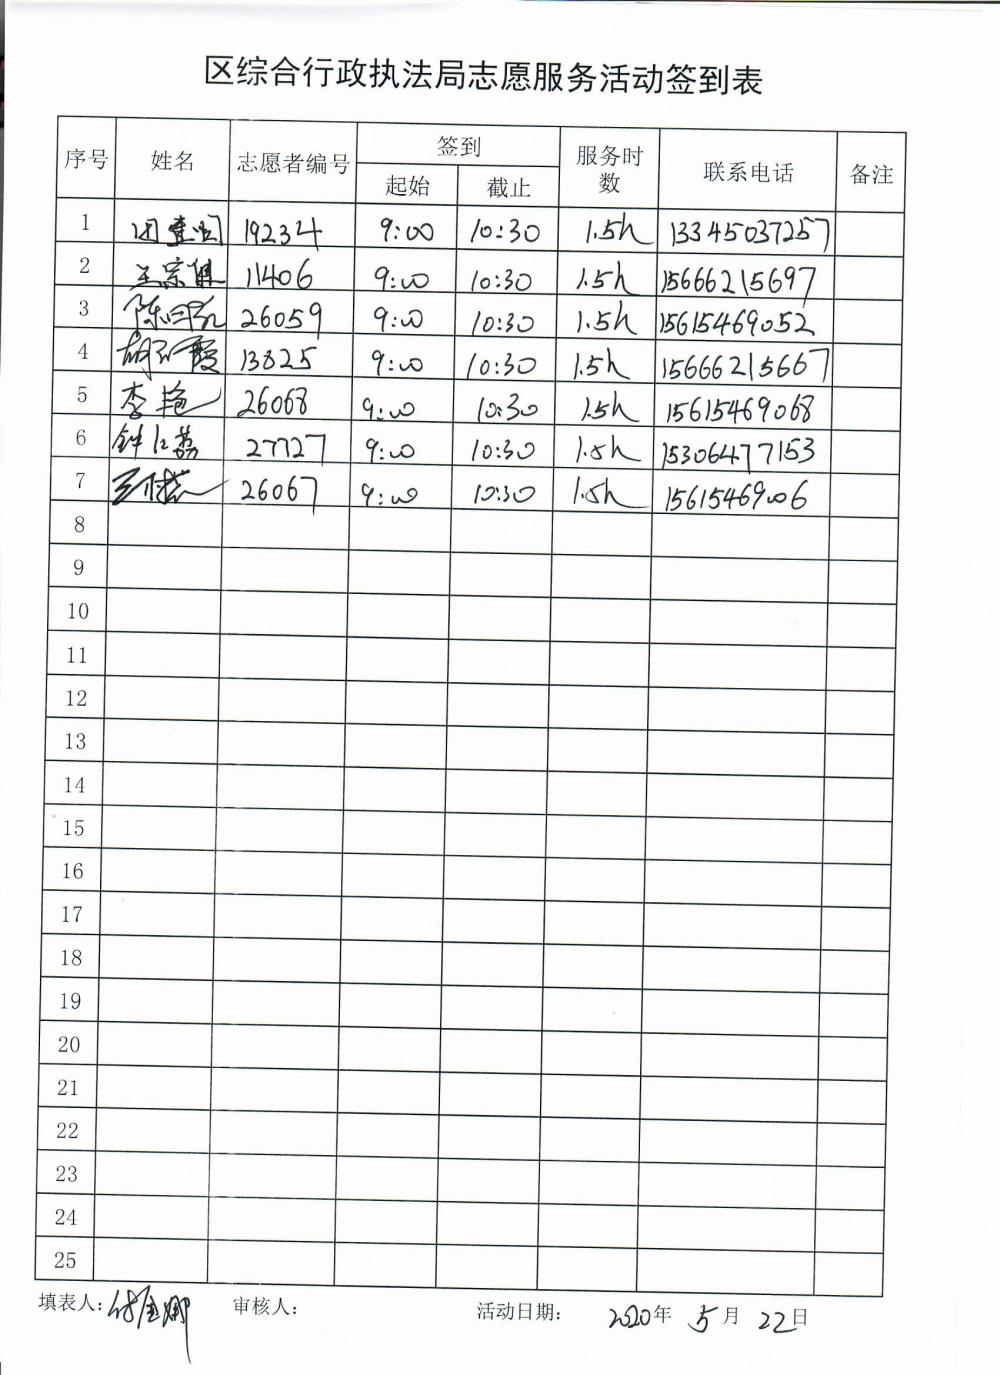 区综合行政执法局志愿服务活动签到表
序号 姓名 志愿者编号 签到 服务时数 联系电话 备注
起始 截止
1 19234 9:00 10:30 1.5h 13345037257
2 王宗健 11406 9:00 10:30 1.5h 15666215697
3 26059 9:00 10:30 1.5h 15615469052
4 13825 9:00 10:30 1.5h 15666215667
5 李艳 26068 9:00 10:30 1.5h 15615469068
6 钟红荔 27727 9:00 10:30 1.5h 15306477153
7 26067 9:00 10:30 1.5h 15615469006
8
9
10
11
12
13
14
15
16
17
18
19
20
21
22
23
24
25
填表人: 审核人: 活动日期: 2020年 5月 22日